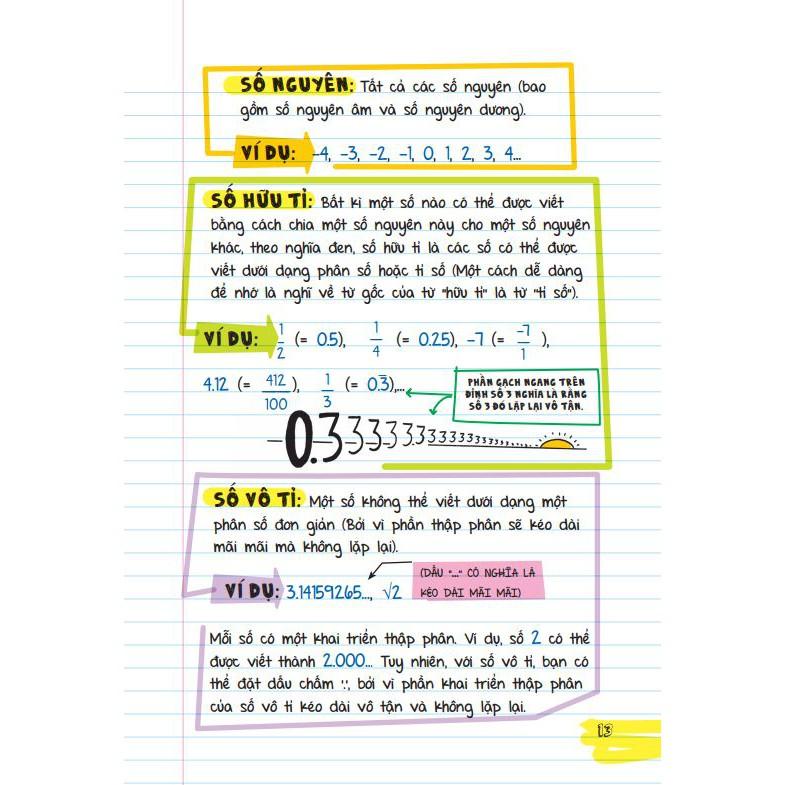 SỐ NGUYÊN: Tất cả các số nguyên (bao
gồm số nguyên âm và số nguyên dương).
VÍ DỤ: -4, -3, -2, -1, 0, 1, 2, 3, 4...
SỐ HỮU TỈ: Bất kì một số nào có thể được viết
bằng cách chia một số nguyên này cho một số nguyên
khác, theo nghĩa đen, số hữu tỉ là các số có thể được
viết dưới dạng phân số hoặc tỉ số (Một cách dễ dàng
để nhớ là nghĩ về từ gốc của từ "hữu tỉ" là từ "tỉ số").
VÍ DỤ: 1/2 (= 0.5), 1/4 (= 0.25), -7 (= -7/1 ),
4.12 (= 412/100 ), 1/3 (= 0.3̅),...
PHẦN GẠCH NGANG TRÊN
ĐỈNH SỐ 3 NGHĨA LÀ RẰNG
SỐ 3 ĐÓ LẶP LẠI VÔ TẬN.
0.33333333333333333333
SỐ VÔ TỈ: Một số không thể viết dưới dạng một
phân số đơn giản (Bởi vì phần thập phân sẽ kéo dài
mãi mãi mà không lặp lại).
(DẤU "..." CÓ NGHĨA LÀ
KÉO DÀI MÃI MÃI)
VÍ DỤ: 3.14159265..., √2
Mỗi số có một khai triển thập phân. Ví dụ, số 2 có thể
được viết thành 2.000... Tuy nhiên, với số vô tỉ, bạn có
thể đặt dấu chấm '.', bởi vì phần khai triển thập phân
của số vô tỉ kéo dài vô tận và không lặp lại.
13